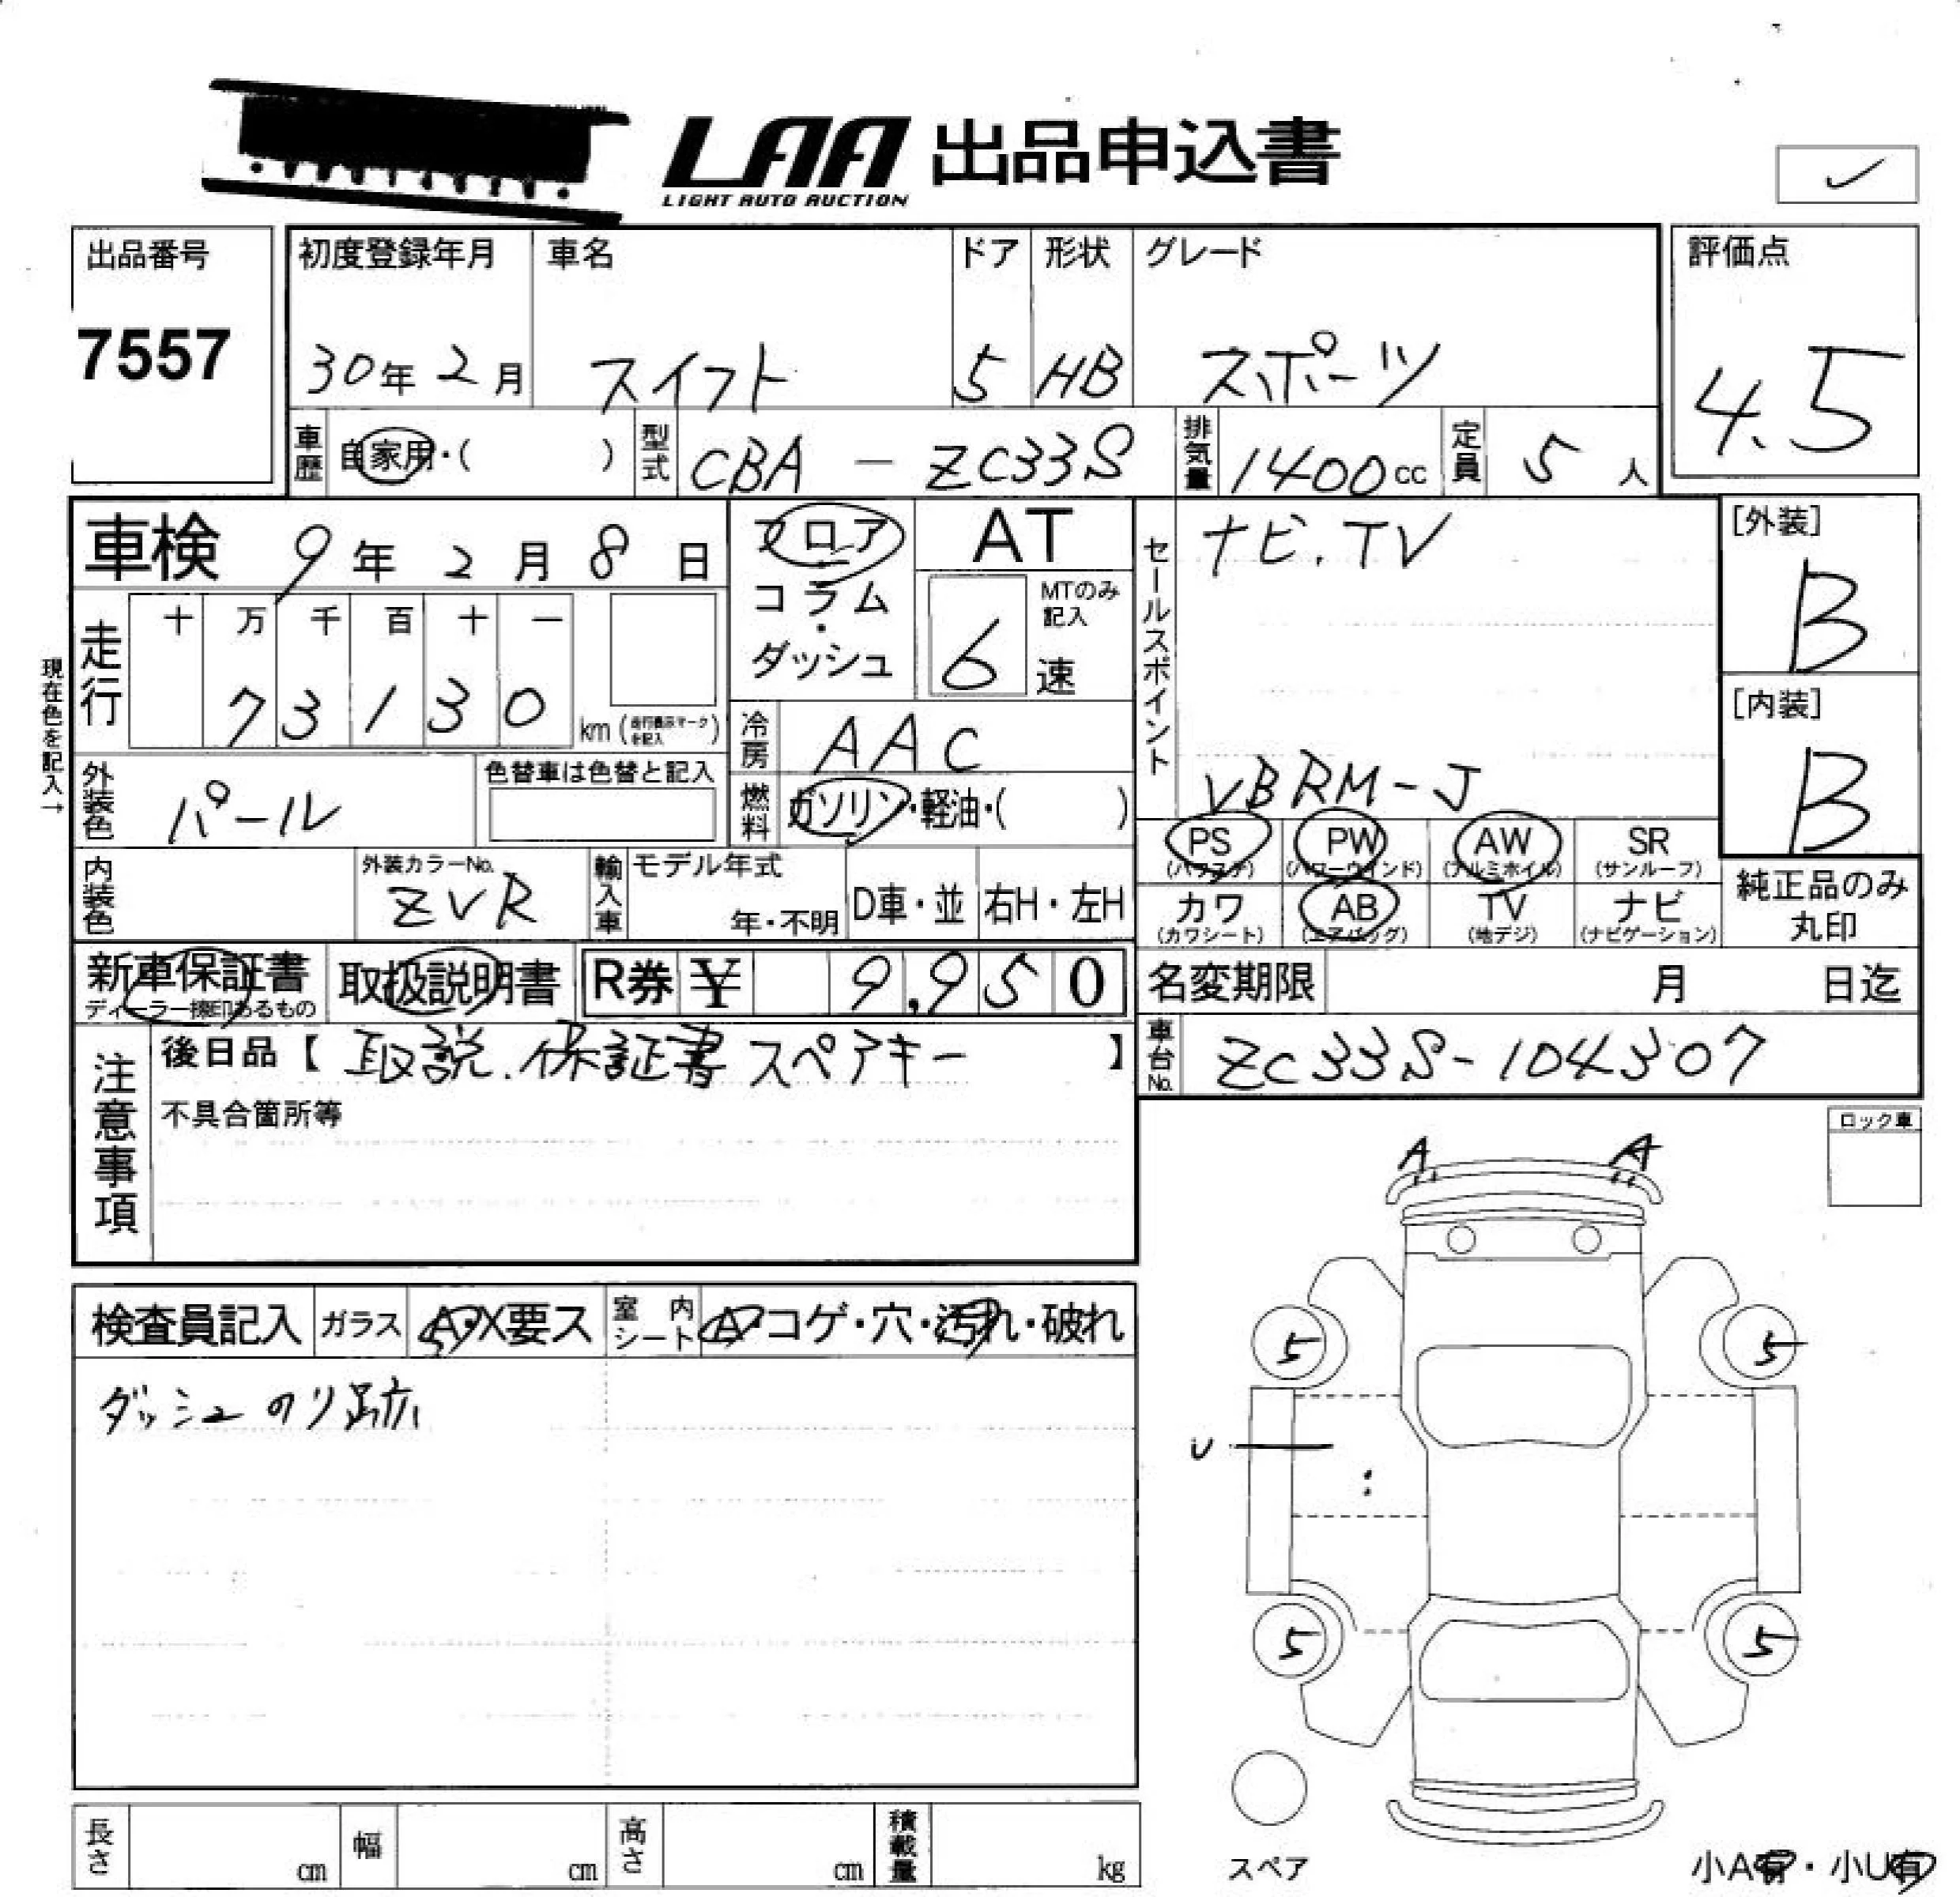 LAA 出品申込書
LIGHT AUTO AUCTION
出品番号
7557
初度登録年月
30年 2月
車名
スイフト
ドア
5
形状
HB
グレード
スポーツ
評価点
4.5
車歴
自家用・( )
型式
CBA - ZC33S
排気量
1400cc
定員
5 人
車検 9年 2月 8日
走行
十 万 千 百 十 一
7 3 1 3 0 km (走行表示マークを記入)
現在色を記入→
フロア・コラム・ダッシュ
AT
MTのみ記入
6 速
冷房
AAC
燃料
ガソリン・軽油・( )
セールスポイント
ナビ.TV
VBRM-J
[外装]
B
[内装]
B
外装色
パール
色替車は色替と記入
内装色
外装カラーNo.
ZVR
輸入車
モデル年式
年・不明
D車・並
右H・左H
PS
(パワステ)
PW
(パワーウインド)
AW
(アルミホイル)
SR
(サンルーフ)
カワ
(カワシート)
AB
(エアバッグ)
TV
(地デジ)
ナビ
(ナビゲーション)
純正品のみ
丸印
新車保証書
ディーラー捺印あるもの
取扱説明書
R券 ¥ 9,950
名変期限 月 日迄
車台No.
ZC33S-104307
注意事項
後日品【 取説.保証書 スペアキー 】
不具合箇所等
ロック車
A A
検査員記入
ガラス
A・X要ス
室内シート
A・コゲ・穴・汚れ・破れ
ダッシュのリ跡
5 5
U
5 5
スペア
小A有・小U有
長さ cm
幅 cm
高さ cm
積載量 kg